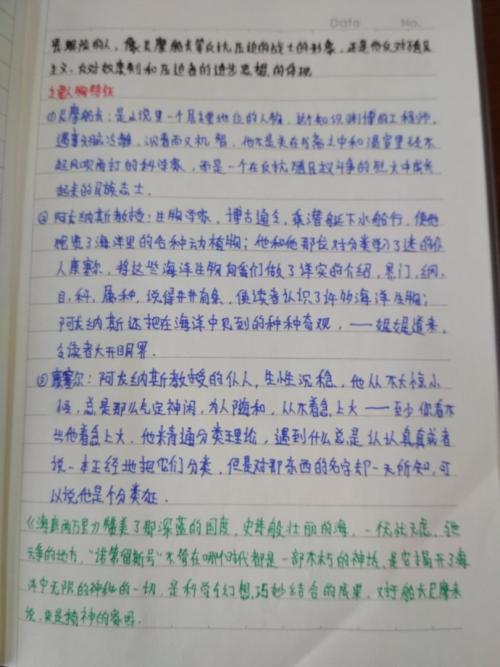 Date No.
冒险的人，像尼摩船长等反抗压迫的战士的形象，正是他反对殖民
主义、反对奴隶制和压迫者的进步思想的体现
主要人物特征
①尼摩船长：是小说里一个居主要地位的人物，这个知识渊博的工程师，
遇事头脑冷静，沉着而又机智，他不是关在书斋之中和温室里经不
起风吹雨打的科学家，而是一个在反抗殖民斗争的烈火中成长
起来的民族志士．
②阿龙纳斯教授：生物学家，博古通今，乘潜艇下水航行，使他
饱览了海洋里的各种动植物；他和他那位对分类学入了迷的仆
人康塞尔，将这些海洋生物向我们做了详实的介绍，界门，纲，
目，科，属，种，说得井井有条，使读者认识了许多海洋生物；
阿龙纳斯还把在海洋中见到的种种奇观，一一娓娓道来，
令读者大开眼界．
③康塞尔：阿龙纳斯教授的仆人，生性沉稳，他从不大惊小
怪，总是那么气定神闲，为人随和，从不着急上火——至少你看不
出他着急上火，他精通分类理论，遇到什么总是认认真真或者
说一本正经地把它们分类，但是对那东西的名字却一无所知，可
以说他是个分类狂．
《海底两万里》赞美了那深蓝的国度，史诗般壮丽的海，一
的地方，“诺第留斯号”不管在哪个时代都是一部不朽的神话，是它揭开了海
洋中无限的神秘的一切，是科学与幻想，巧妙结合的成果，对于船长尼摩来
说，更是精神的家园．